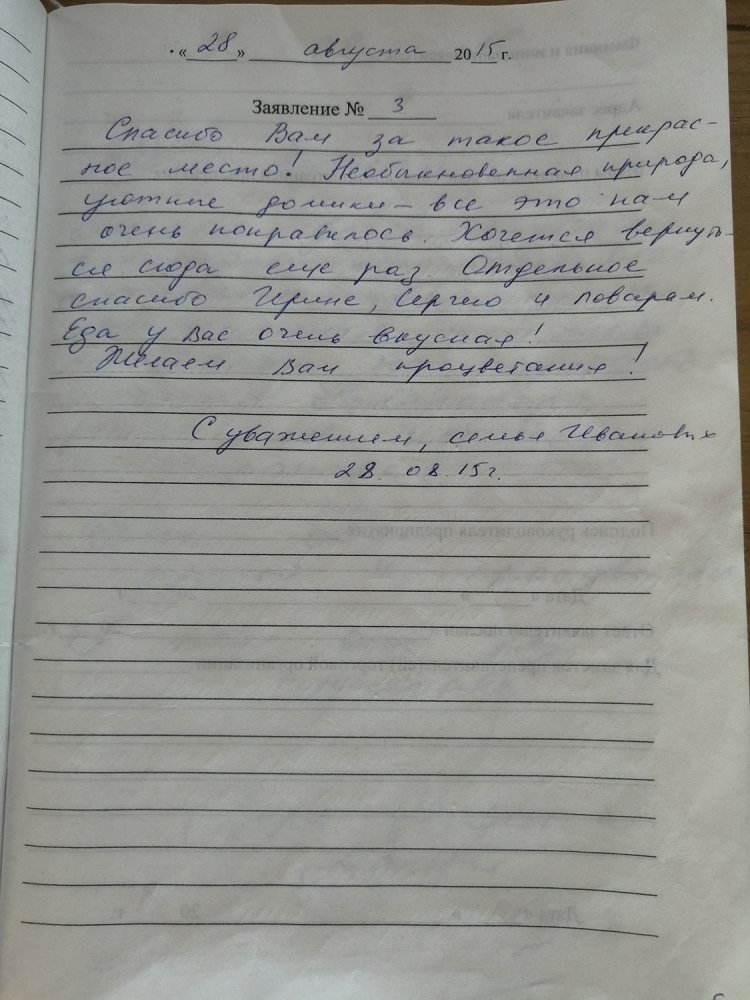 «28» августа 2015 г.
Заявление № 3
Спасибо Вам за такое прекрас-
ное место! Необыкновенная природа,
уютные домики – все это нам
очень понравилось. Хочется вернуть-
ся сюда еще раз. Отдельное
спасибо Ирине, Сергею и поварам.
Еда у вас очень вкусная!
Желаем Вам процветания!
С уважением, семья Ивановых
28.08.15г.